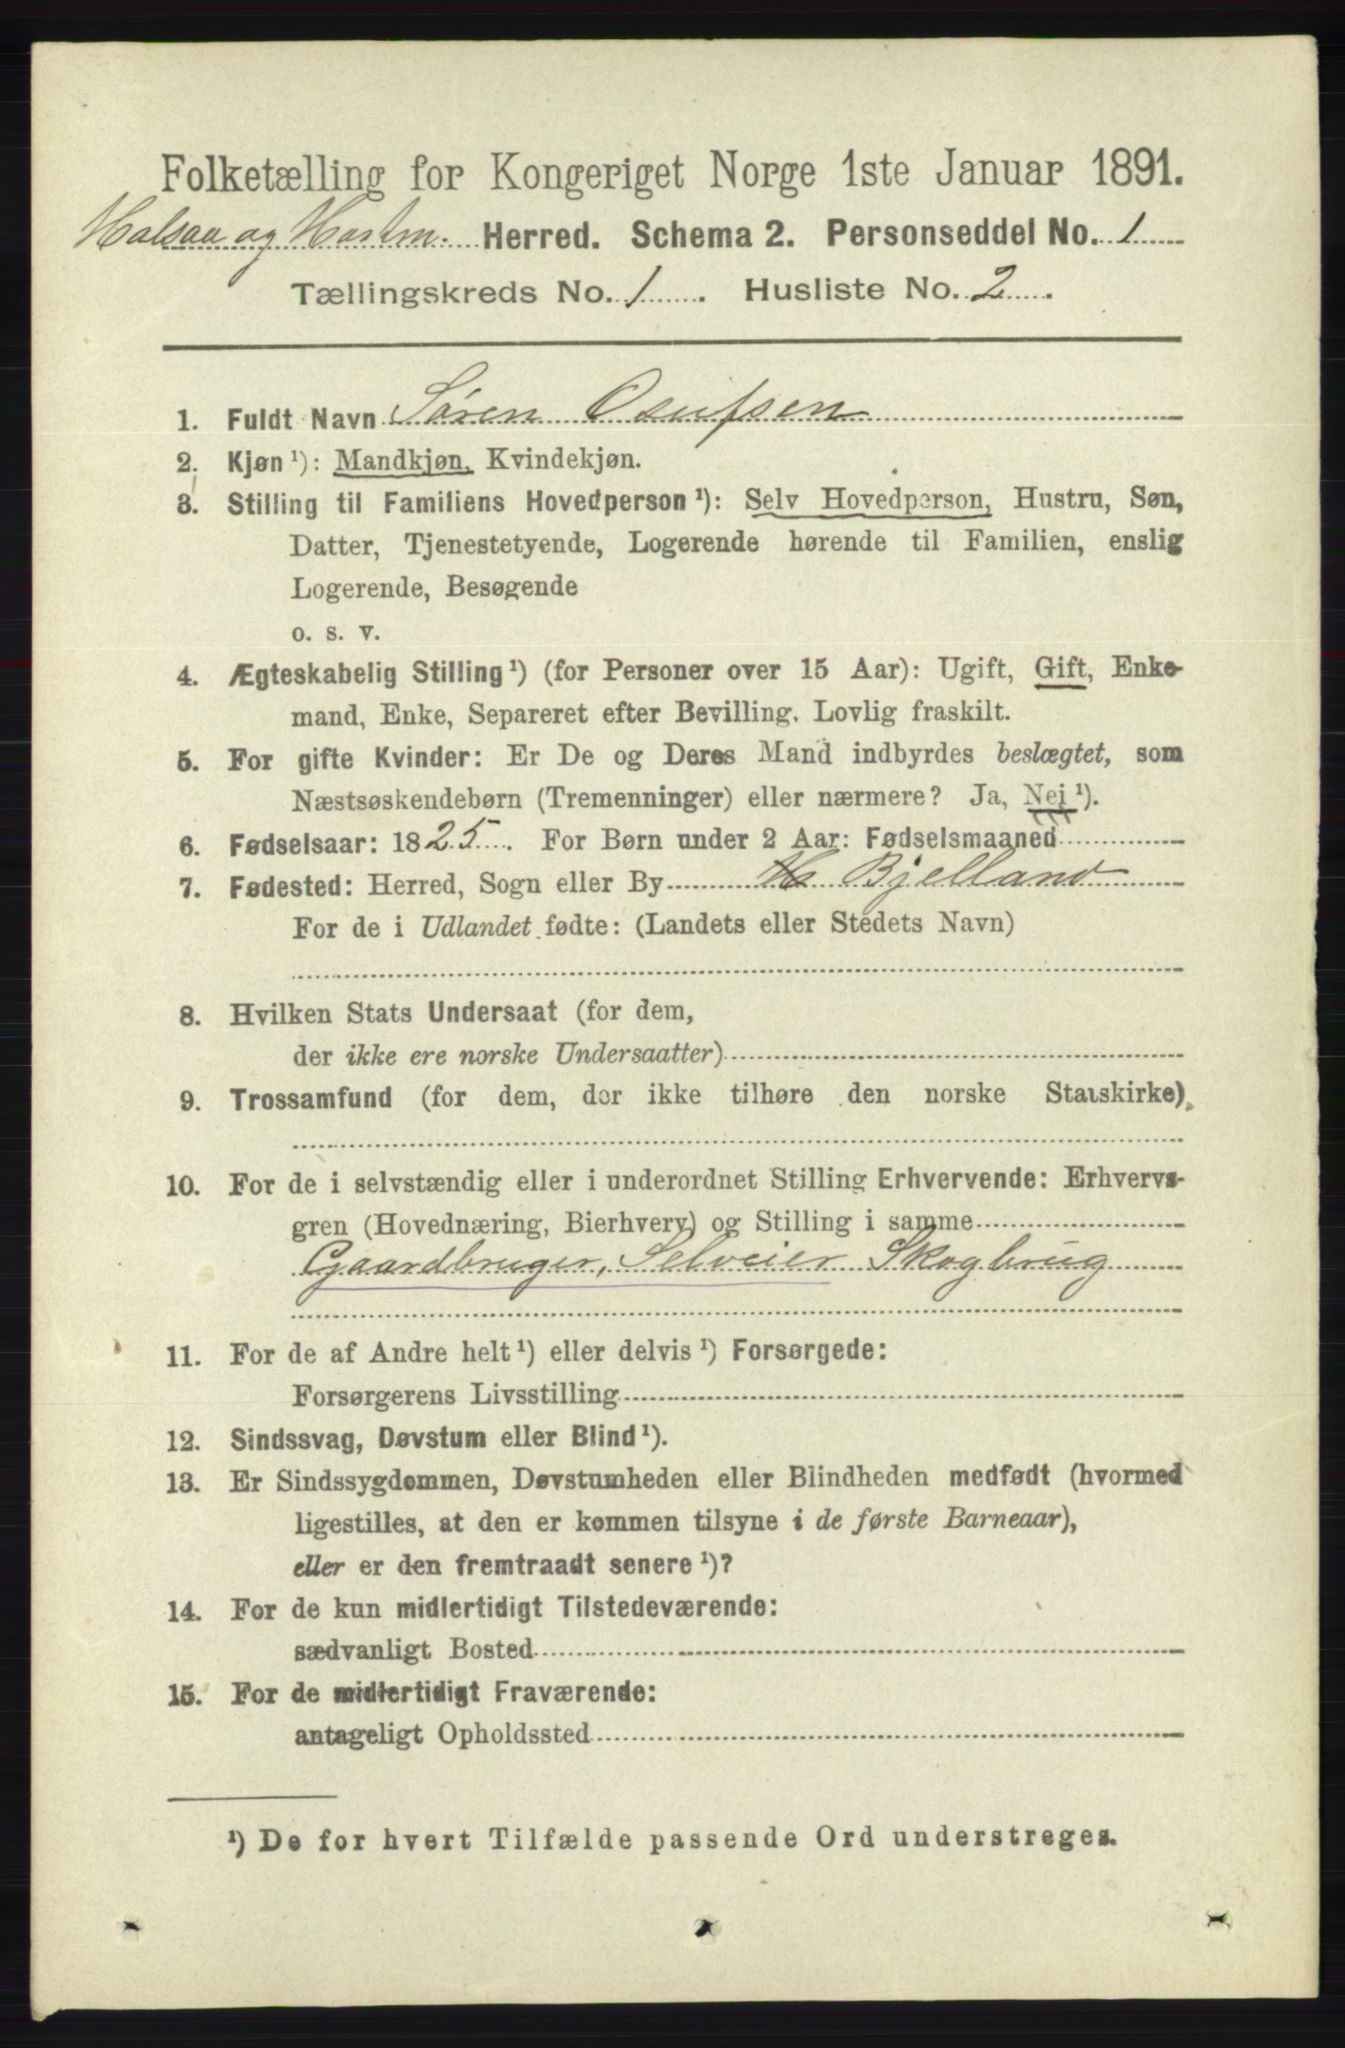 Folketælling for Kongeriget Norge 1ste Januar 1891.
Halsaa og Hartm. Herred. Schema 2. Personseddel No. 1
Tællingskreds No. 1. Husliste No. 2.
1. Fuldt Navn Sören Osufsen
2. Kjøn ¹): Mandkjøn, Kvindekjøn.
3. Stilling til Familiens Hovedperson ¹): Selv Hovedperson, Hustru, Søn,
Datter, Tjenestetyende, Logerende hørende til Familien, enslig
Logerende, Besøgende
o. s. v.
4. Ægteskabelig Stilling ¹) (for Personer over 15 Aar): Ugift, Gift, Enke-
mand, Enke, Separeret efter Bevilling. Lovlig fraskilt.
5. For gifte Kvinder: Er De og Deres Mand indbyrdes beslægtet, som
Næstsøskendebørn (Tremenninger) eller nærmere? Ja, Nei ¹).
6. Fødselsaar: 1825. For Børn under 2 Aar: Fødselsmaaned
7. Fødested: Herred, Sogn eller By Bjelland
For de i Udlandet fødte: (Landets eller Stedets Navn)
8. Hvilken Stats Undersaat (for dem,
der ikke ere norske Undersaatter)
9. Trossamfund (for dem, der ikke tilhøre den norske Statskirke)
10. For de i selvstændig eller i underordnet Stilling Erhvervende: Erhvervs-
gren (Hovednæring, Bierhverv) og Stilling i samme
Gaardbruger, Selveier Skogbrug
11. For de af Andre helt ¹) eller delvis ¹) Forsørgede:
Forsørgerens Livsstilling
12. Sindssvag, Døvstum eller Blind ¹).
13. Er Sindssygdommen, Døvstumheden eller Blindheden medfødt (hvormed
ligestilles, at den er kommen tilsyne i de første Barneaar),
eller er den fremtraadt senere ¹)?
14. For de kun midlertidigt Tilstedeværende:
sædvanligt Bosted
15. For de midlertidigt Fraværende:
antageligt Opholdssted
¹) De for hvert Tilfælde passende Ord understreges.